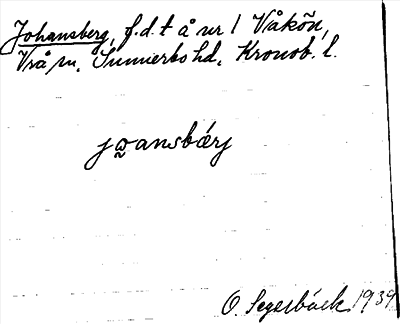 Johansberg, f.d.t å nr 1 Våkön,
Vrå sn, Sunnerbo hd, Kronob. l.
jωansbǽrj
O. Segerbäck 1939